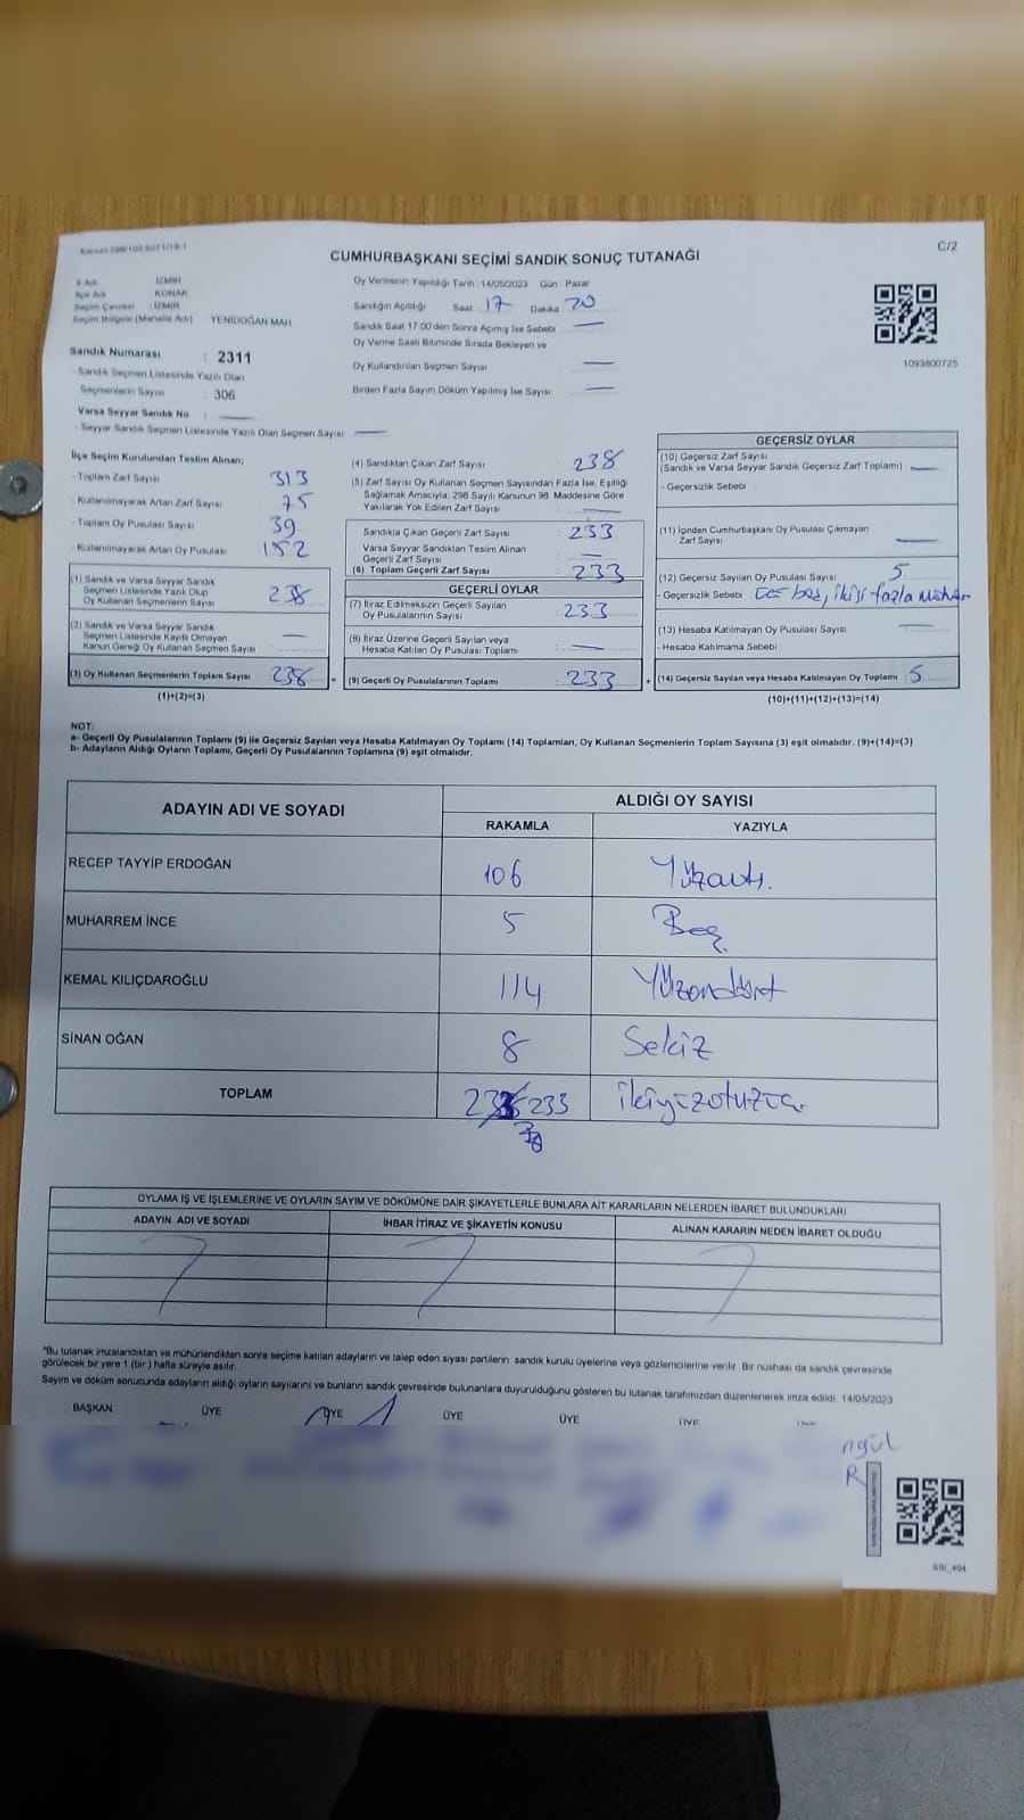 C/2
CUMHURBAŞKANI SEÇİMİ SANDIK SONUÇ TUTANAĞI
İl Adı İZMİR
İlçe Adı KONAK
Seçim Çevresi : İZMİR
Seçim Bölgesi (Mahalle Adı) YENİDOĞAN MAH
Sandık Numarası : 2311
Sandık Seçmen Listesinde Yazılı Olan
Seçmenlerin Sayısı : 306
Varsa Seyyar Sandık No : —
- Seyyar Sandık Seçmen Listesinde Yazılı Olan Seçmen Sayısı —
Oy Vermenin Yapıldığı Tarih : 14/05/2023 Gün : Pazar
Sandığın Açıldığı Saat 17 Dakika 20
Sandık Saat 17:00'den Sonra Açılmış İse Sebebi —
Oy Verme Saati Bitiminde Sırada Bekleyen ve
Oy Kullandırılan Seçmen Sayısı —
Birden Fazla Sayım Döküm Yapılmış İse Sayısı —
1093800725
İlçe Seçim Kurulundan Teslim Alınan;
- Toplam Zarf Sayısı 313
- Kullanılmayarak Artan Zarf Sayısı 75
- Toplam Oy Pusulası Sayısı 39
- Kullanılmayarak Artan Oy Pusulası 152
(1) Sandık ve Varsa Seyyar Sandık
Seçmen Listesinde Yazılı Olup
Oy Kullanan Seçmenlerin Sayısı 238
(2) Sandık ve Varsa Seyyar Sandık
Seçmen Listesinde Kayıtlı Olmayan
Kanun Gereği Oy Kullanan Seçmen Sayısı —
(3) Oy Kullanan Seçmenlerin Toplam Sayısı 238 =
(1)+(2)=(3)
(4) Sandıktan Çıkan Zarf Sayısı 238
(5) Zarf Sayısı Oy Kullanan Seçmen Sayısından Fazla İse, Eşitliği
Sağlamak Amacıyla, 298 Sayılı Kanunun 98. Maddesine Göre
Yakılarak Yok Edilen Zarf Sayısı —
Sandıkta Çıkan Geçerli Zarf Sayısı 233
Varsa Seyyar Sandıktan Teslim Alınan
Geçerli Zarf Sayısı —
(6) Toplam Geçerli Zarf Sayısı 233
GEÇERLİ OYLAR
(7) İtiraz Edilmeksizin Geçerli Sayılan
Oy Pusulalarının Sayısı : 233
(8) İtiraz Üzerine Geçerli Sayılan veya
Hesaba Katılan Oy Pusulası Toplamı : —
(9) Geçerli Oy Pusulalarının Toplamı : 233 +
GEÇERSİZ OYLAR
(10) Geçersiz Zarf Sayısı
(Sandık ve Varsa Seyyar Sandık Geçersiz Zarf Toplamı) —
- Geçersizlik Sebebi
(11) İçinden Cumhurbaşkanı Oy Pusulası Çıkmayan
Zarf Sayısı —
(12) Geçersiz Sayılan Oy Pusulası Sayısı 5
- Geçersizlik Sebebi boş, ikisi fazla mühür
(13) Hesaba Katılmayan Oy Pusulası Sayısı —
- Hesaba Katılmama Sebebi
(14) Geçersiz Sayılan veya Hesaba Katılmayan Oy Toplamı : 5
(10)+(11)+(12)+(13)=(14)
NOT:
a- Geçerli Oy Pusulalarının Toplamı (9) ile Geçersiz Sayılan veya Hesaba Katılmayan Oy Toplamı (14) Toplamları, Oy Kullanan Seçmenlerin Toplam Sayısına (3) eşit olmalıdır. (9)+(14)=(3)
b- Adayların Aldığı Oyların Toplamı, Geçerli Oy Pusulalarının Toplamına (9) eşit olmalıdır.
ADAYIN ADI VE SOYADI ALDIĞI OY SAYISI
RAKAMLA YAZIYLA
RECEP TAYYİP ERDOĞAN 106 Yüzaltı.
MUHARREM İNCE 5 Beş
KEMAL KILIÇDAROĞLU 114 Yüzondört
SİNAN OĞAN 8 Sekiz
TOPLAM 233 ikiyüzotuzüç
OYLAMA İŞ VE İŞLEMLERİNE VE OYLARIN SAYIM VE DÖKÜMÜNE DAİR ŞİKAYETLERLE BUNLARA AİT KARARLARIN NELERDEN İBARET BULUNDUKLARI
ADAYIN ADI VE SOYADI İHBAR İTİRAZ VE ŞİKAYETİN KONUSU ALINAN KARARIN NEDEN İBARET OLDUĞU
*Bu tutanak imzalandıktan ve mühürlendikten sonra seçime katılan adayların ve talep eden siyasi partilerin sandık kurulu üyelerine veya gözlemcilerine verilir. Bir nüshası da sandık çevresinde
görülecek bir yere 1 (bir) hafta süreyle asılır.
Sayım ve döküm sonucunda adayların aldığı oyların sayılarını ve bunların sandık çevresinde bulunanlara duyurulduğunu gösteren bu tutanak tarafımızdan düzenlenerek imza edildi. 14/05/2023
BAŞKAN ÜYE ÜYE ÜYE ÜYE ÜYE